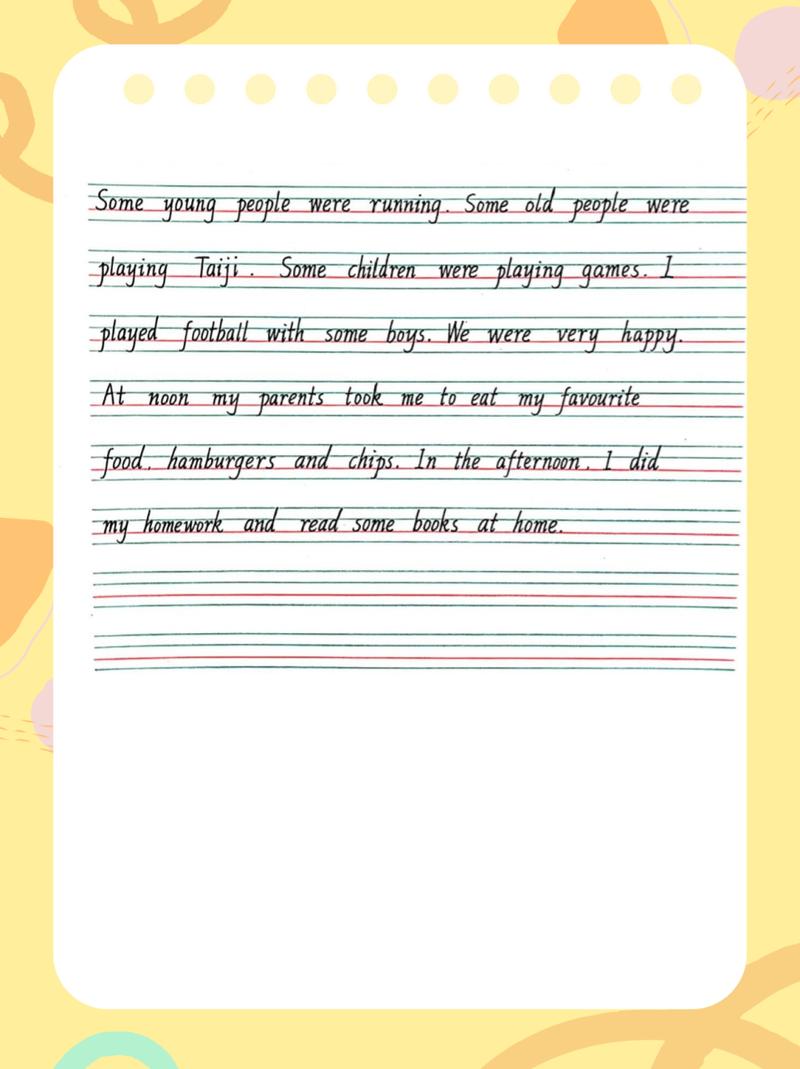 Some young people were running. Some old people were
playing Taiji. Some children were playing games. I
played football with some boys. We were very happy.
At noon my parents took me to eat my favourite
food, hamburgers and chips. In the afternoon, I did
my homework and read some books at home.